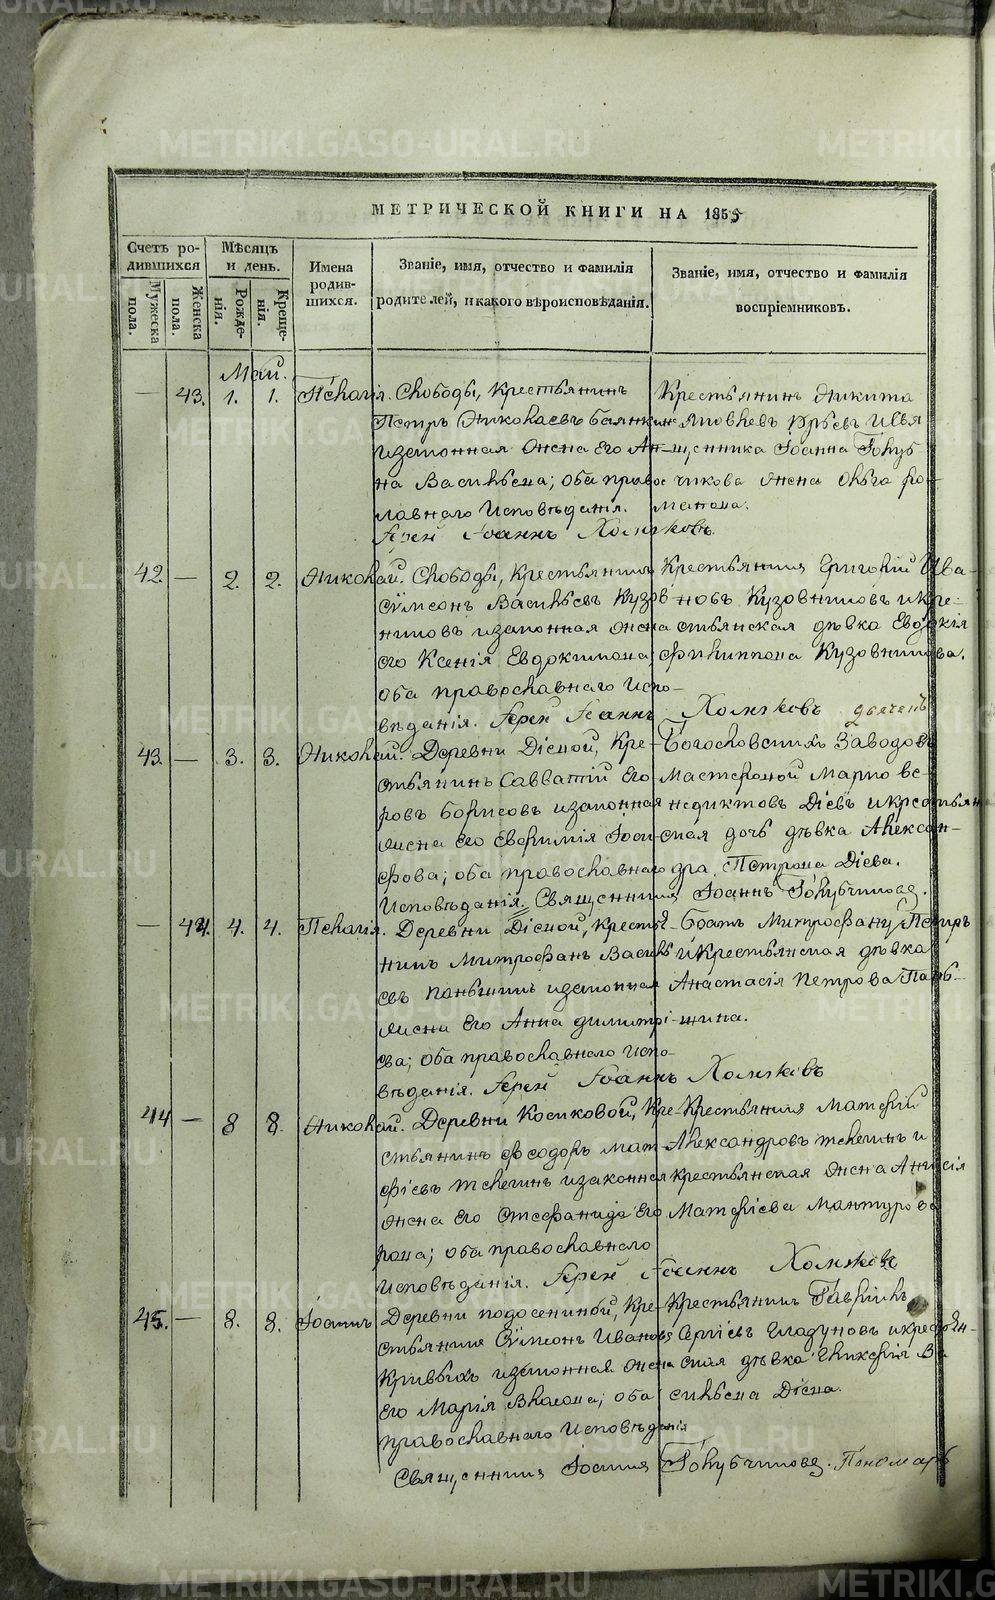 METRIKI.GASO-URAL.RU
МЕТРИЧЕСКОЙ КНИГИ НА 1855
Счетъ ро-
дившихся
Мѣсяцъ
и день.
Имена
родив-
шихся.
Званіе, имя, отчество и фамилія
родителей, и какого вѣроисповѣданія.
Званіе, имя, отчество и фамилія
воспріемниковъ.
Мужеска
пола.
Женска
пола.
Рожде-
нія.
Креще-
нія.
Май.
— 43. 1. 1. Пелагія. Слободы, крестьянинъ
Петръ Николаевъ
и законная жена его Ан-
на Васильева; оба правос-
лавнаго исповѣданія.
Крестьянинъ Никита
Яковлевъ
щенника Іоанна Голуб-
чикова жена Ольга Ро-
манова.
Іерей Іоаннъ Холмяковъ
42. — 2. 2. Николай. Слободы, Крестьянинъ
Сѵмеонъ Васильевъ Кузов-
никовъ и законная жена
его Ксенія Евдокимова;
оба православнаго испо-
вѣданія. Іерей Іоаннъ Холмяковъ
Крестьянинъ Григорій Ива-
новъ Кузовниковъ и кре-
стьянская дѣвка Евдокія
Филиппова Кузовникова.
дьячекъ
43. — 3. 3. Николай. Деревни Діевой, Кре-
стьянинъ Савватій Его-
ровъ Борисовъ и законная
жена его Евфимія Іоси-
фова; оба православнаго
исповѣданія. Священникъ Іоаннъ Голубчиковъ.
Богословскихъ Заводовъ
Мастеровой Марко Ве-
недиктовъ Діевъ и крестьян-
ская дочь дѣвка Алексан-
дра Петрова Діева.
— 44. 4. 4. Пелагія. Деревни Діевой, крестья-
нинъ Митрофанъ Василь-
евъ Паньшинъ и законная
жена его Анна Димитрі-
ева; оба православнаго испо-
вѣданія. Іерей Іоаннъ Холмяковъ
Братъ Митрофану Петръ
и крестьянская дѣвка
Анастасія Петрова Пань-
шина.
44 — 8 8. Николай. Деревни Косиковой, Кре-
стьянинъ Феодоръ Мат-
фіевъ Телегинъ и законная
жена его Стефанида Его-
рова; оба православнаго
исповѣданія. Іерей Іоаннъ Холмяковъ
Крестьянинъ Матфій
Александровъ Телегинъ и
крестьянская жена Анисія
Матфіева Мантурова
45. — 8. 8. Іоаннъ Деревни Подосениной, Кре-
стьянинъ Сѵмеонъ Ивановъ
Кривыхъ и законная жена
его Марія Власова; оба
православнаго исповѣданія
Крестьянинъ Гавріилъ
Сергіевъ Гладуновъ и крестьян-
ская дѣвка Гликерія Ва-
сильева Діева.
Священникъ Іоаннъ Голубчиковъ. Пономарь